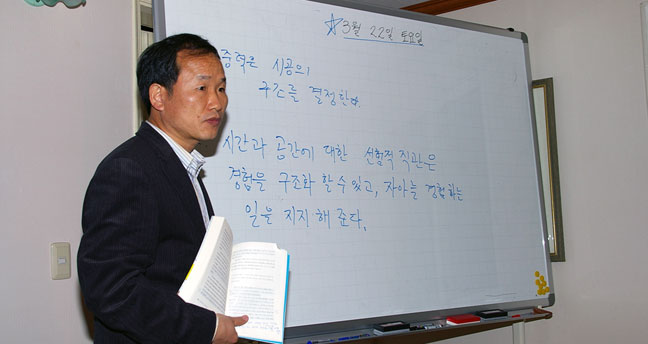 ☆3월 22일 토요일
중력은 시공의
구조를 결정한다.
시간과 공간에 대한 선험적 직관은
경험을 구조화 할 수 있고, 자아는 경험하는
일을 지지 해 준다.